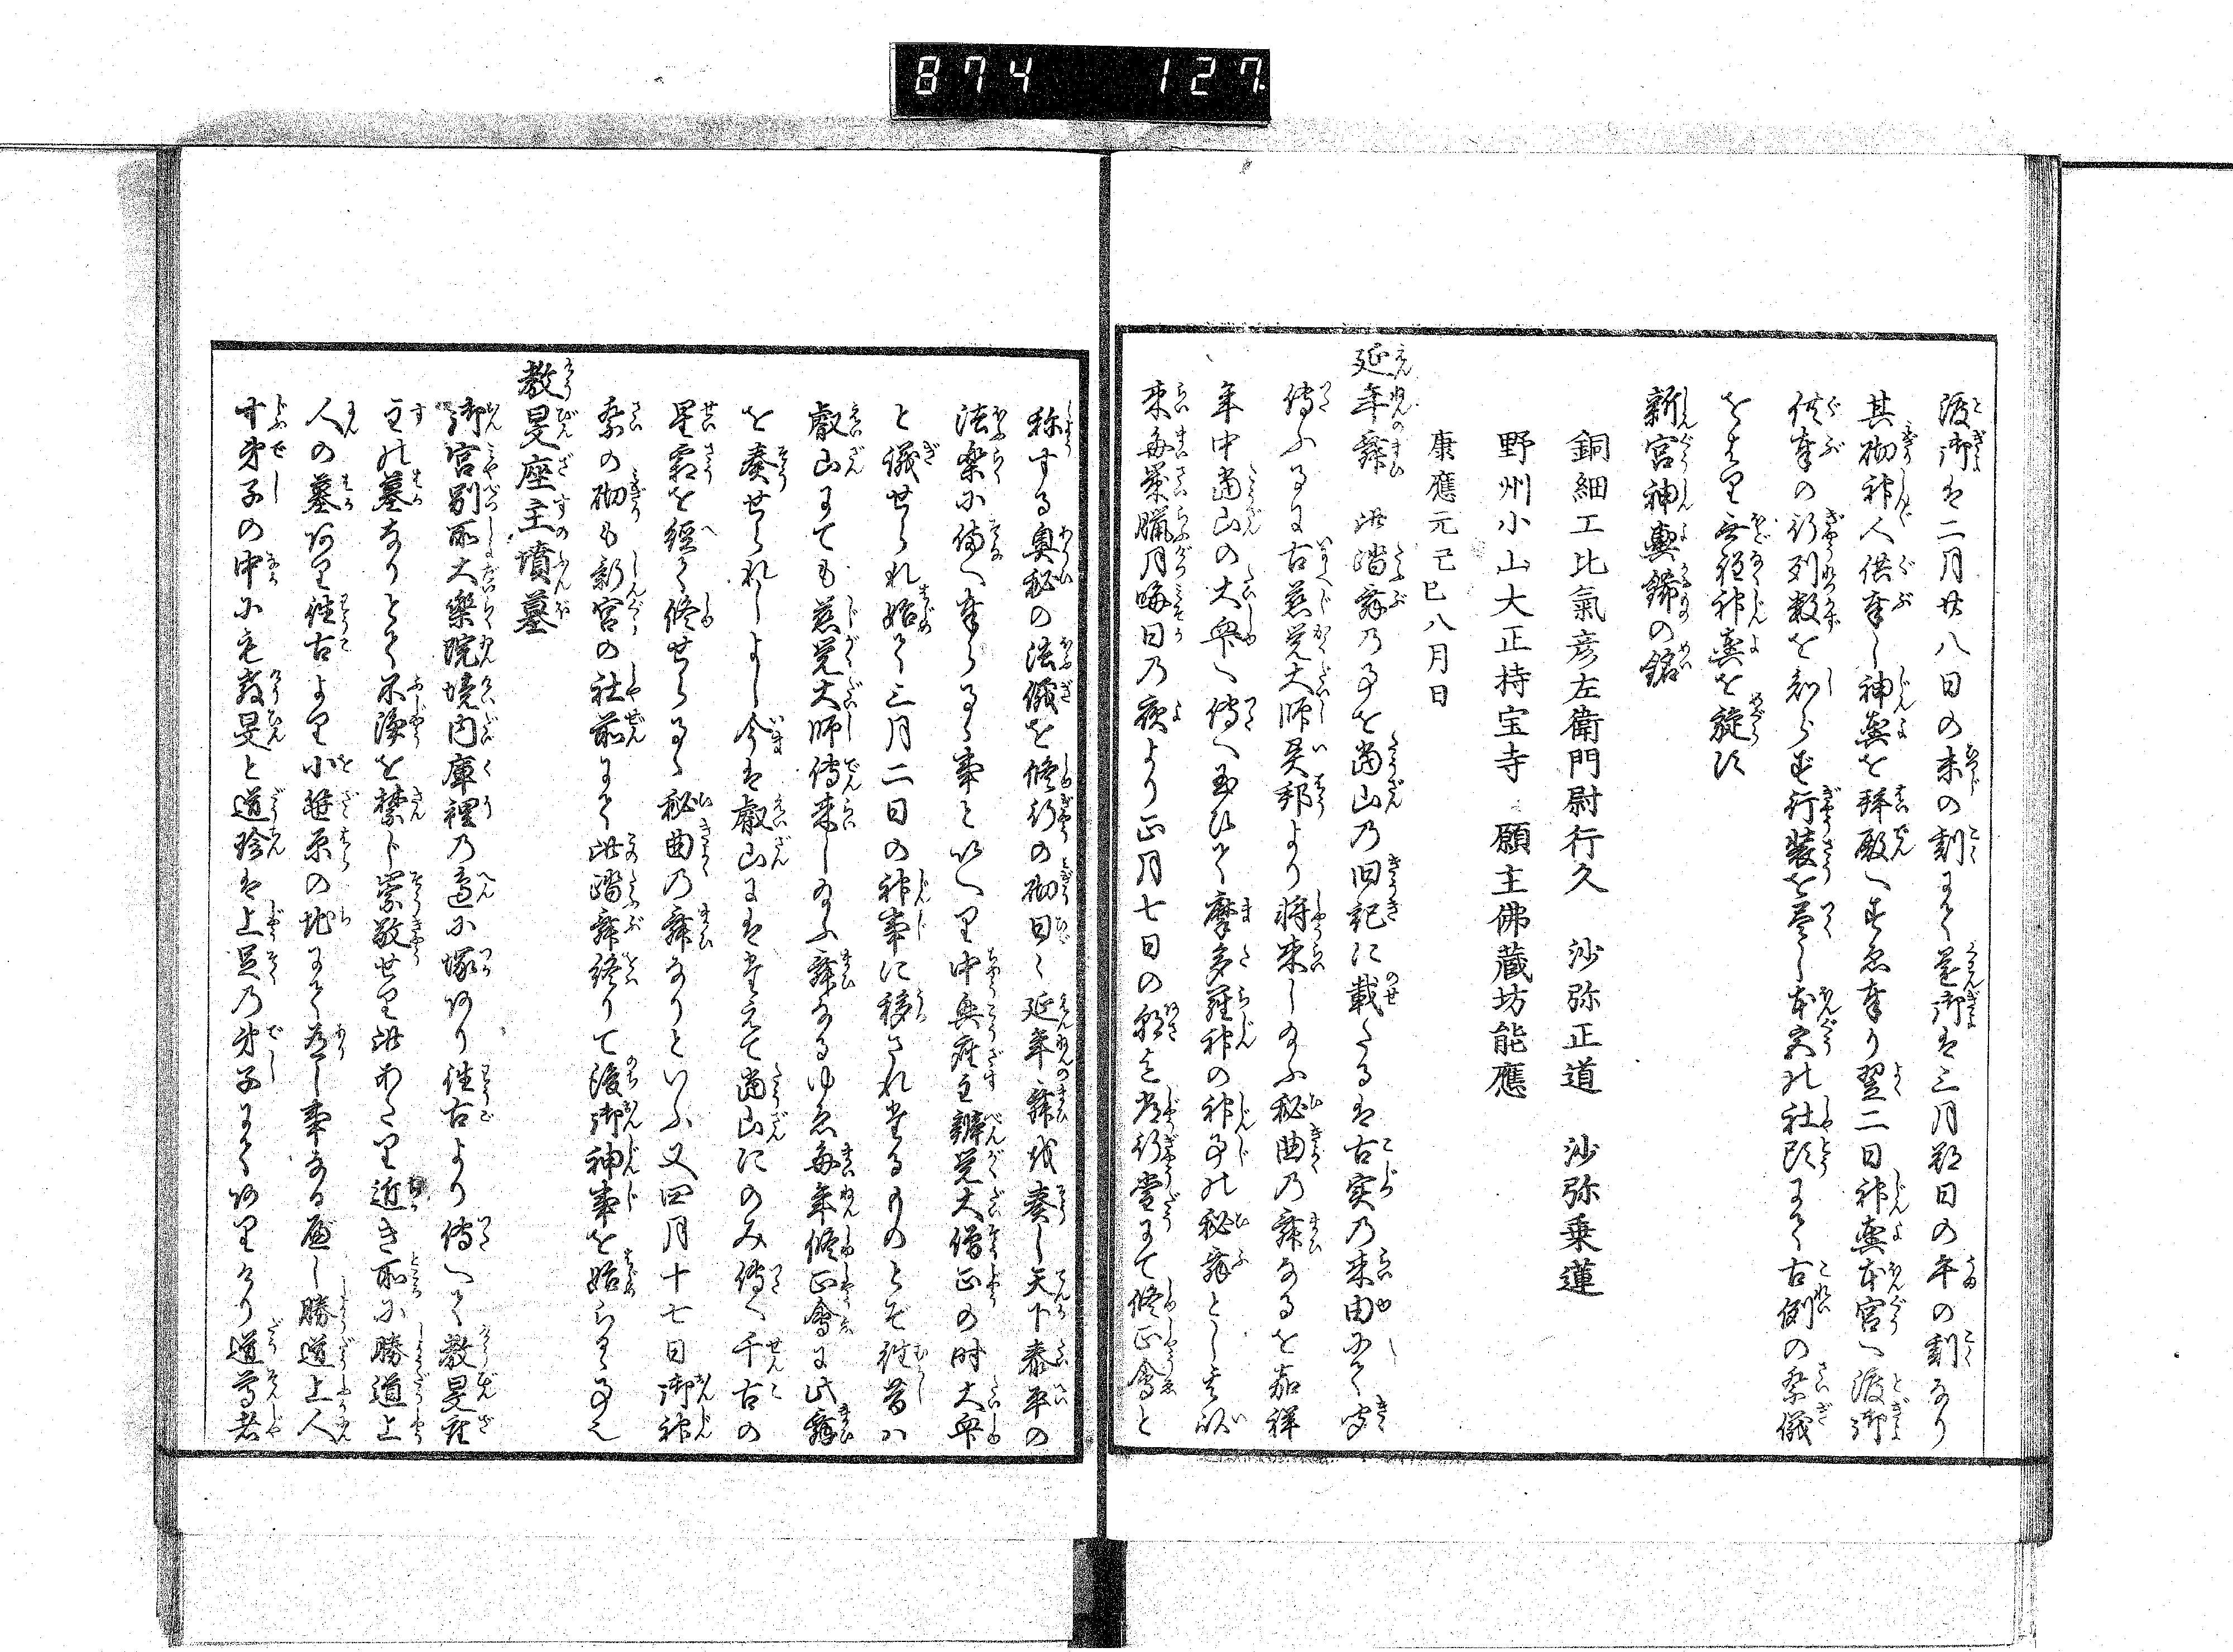 874 127
渡御は二月廿八日の未の刻にて還御は三月朔日の午の刻なり
其砌神人供奉し神輿を拝殿へすゑ奉り翌二日神輿本宮へ渡御
供奉の行列数を知らず行装を尽し本宮の社頭にて古例の祭儀
をはり無程神輿を旋す
新宮神輿鏽の銘
銅細工比氣彦左衛門尉行久 沙弥正道 沙弥乗蓮
野州小山大正持宝寺 願主佛蔵坊能應
康應元己巳八月日
延年舞 此踏舞乃事を當山乃旧記に載たるは古実乃来由にて
傳ふるに古慈覚大師異邦より将来し給ふ秘曲乃舞なるを嘉祥
年中當山の大衆へ傳へ玉ひて摩多羅神の神事の秘舞とし
来毎歳臘月晦日乃夜より正月七日の朝迄常行堂にて修正會と
称する奥秘の法儀を修行の砌日々延年舞を奏し天下泰平の
法楽に備へ奉らるゝ事といへり中興座主辨覚大僧正の時大衆
と儀せられ始て三月二日の神事に移されたるものとぞ往昔ハ
叡山にても慈覚大師傳来し給ふ舞なるゆゑ毎年修正會に此舞
を奏せられしよし今は叡山には絶えて當山にのみ傳へ千古の
星霜を經て修せらるゝ秘曲乃舞なりといふ又四月十七日御神
祭の砌も新宮の社前にて此踏舞終りて後御神事を始らるゝ事也
教旻座主墳墓
御宮別所大樂院境内庫裡乃邊に塚あり往古より傳へて教旻座
主の墓なりとて不浄を禁じ崇敬せり此あたり近き所に勝道上
人の墓あり往古より小笹原の地にて有し事なるべし勝道上人
十弟子の中にも教旻と道珍は上足乃弟子にてありけり道尊者